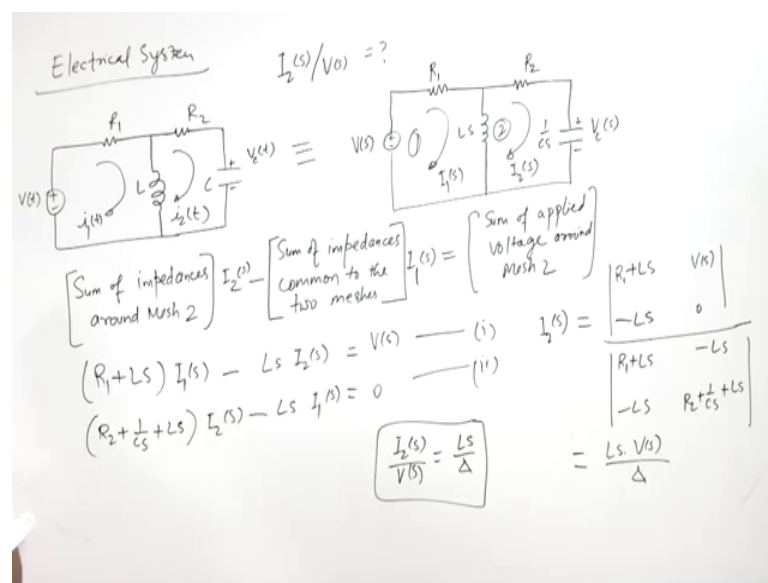 Electrical System
I₂(s)/V(s) = ?
R₁ R₂
V(t) + - i₁(t) L i₂(t) C + - V_c(t)
≡
R₁ R₂
V(s) + - ① I₁(s) LS ② I₂(s) 1/CS + - V_c(s)
[Sum of impedances around Mesh 2] I₂(s) - [Sum of impedances common to the two meshes] I₁(s) = [Sum of applied voltage around Mesh 2]
(R₁+LS) I₁(s) - LS I₂(s) = V(s) — (i)
(R₂+1/CS+LS) I₂(s) - LS I₁(s) = 0 — (ii)
I₂(s) = |R₁+LS V(s)|
|-LS 0|
|R₁+LS -LS|
|-LS R₂+1/CS+LS|
= LS. V(s)/Δ
I₂(s)/V(s) = LS/Δ